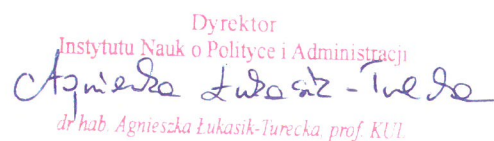 Dyrektor
Instytutu Nauk o Polityce i Administracji
Agnieszka Łukasik-Turecka
dr hab. Agnieszka Łukasik-Turecka, prof. KUL